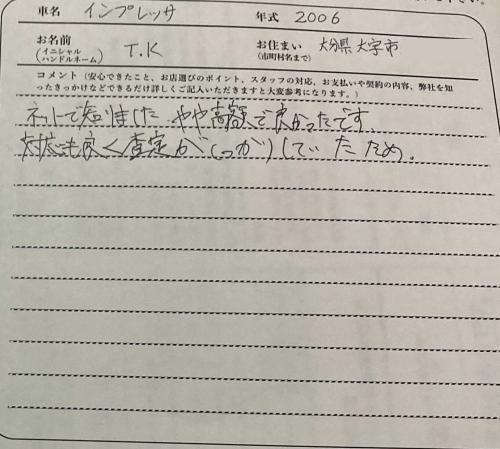 車名 インプレッサ 年式 2006
お名前 (イニシャル ハンドルネーム) T.K お住まい (市町村名まで) 大分県大字市
コメント(安心できたこと、お店選びのポイント、スタッフの対応、お支払いや契約の内容、弊社を知
ったきっかけなどできるだけ詳しくご記入いただきますと大変参考になります。)
ネットで知りました やや高額で良かったです。
対応も良く査定がしっかりしていたため。